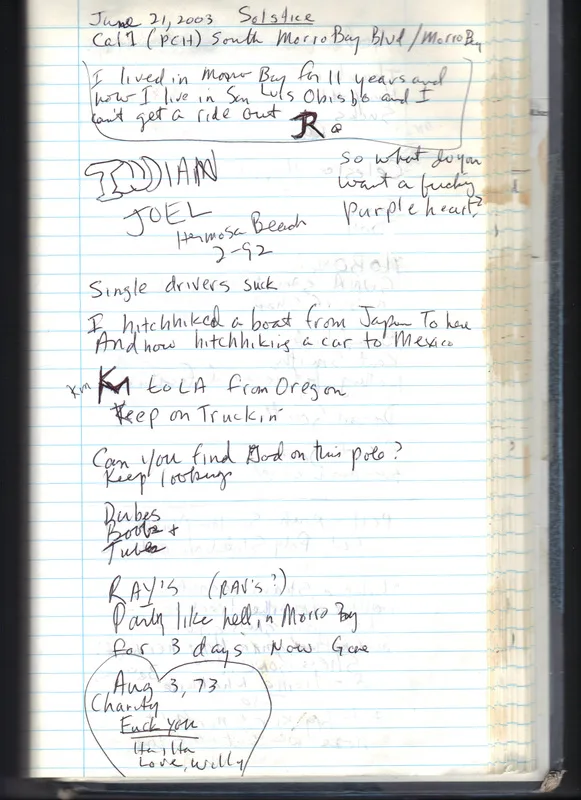 June 21, 2003 Solstice
Cal 1 (PCH) South Morro Bay Blvd/Morro Bay
I lived in Morro Bay for 11 years and
now I live in San Luis Obisbo and I
can't get a ride out JR
so what do you
want a fucky
purple heart?
INDIAN
JOEL
Hermosa Beach
2-92
Single drivers suck
I hitchhiked a boat from Japan To here
And now hitchhiking a car to Mexico
Km KM to LA from Oregon
Keep on Truckin'
Can you find God on this pole?
Keep looking
Dubes
Boobs +
Tubes
RAY'S (RAV'S?)
Party like hell, in Morro Bay
for 3 days Now Gone
Aug 3, 73
Charity
Fuck you
Ha, Ha
Love, Willy